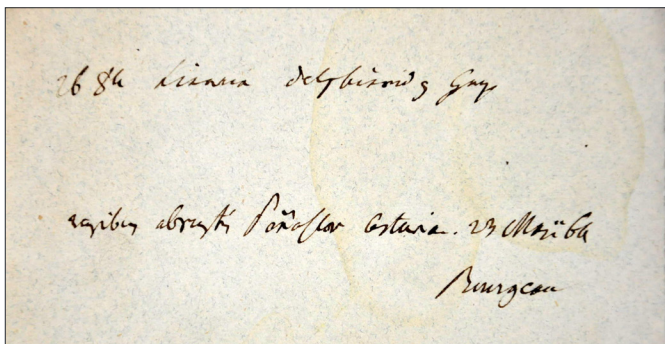 2684 Linaria delphinioides Gay
rupibus abruptis Peñaflor Asturia. 23 Maii 64
Bourgeau